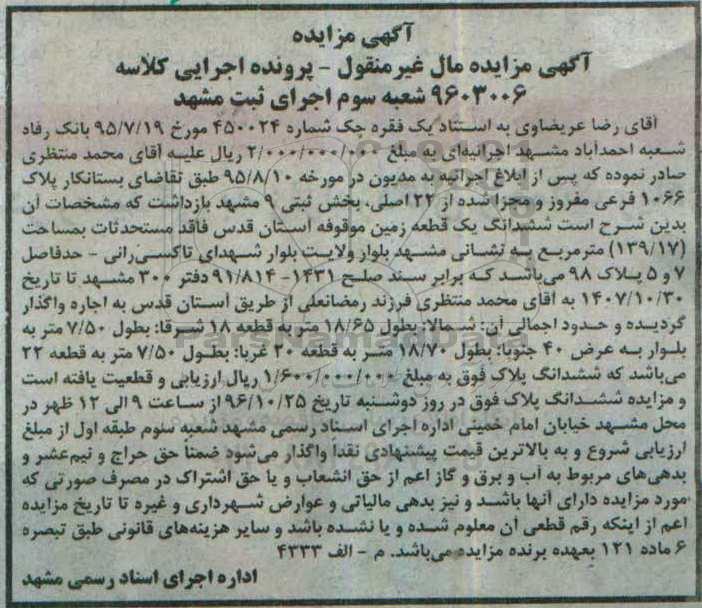 آگهی مزایده
آگهی مزایده مال غیرمنقول - پرونده اجرایی کلاسه
۹۶۰۳۰۰۶ شعبه سوم اجرای ثبت مشهد
آقای رضا عریضاوی به استناد یک فقره چک شماره ۴۵۰۰۲۴ مورخ ۹۵/۷/۱۹ بانک رفاه
شعبه احمدآباد مشهد اجرائیه‌ای به مبلغ ۲/۰۰۰/۰۰۰/۰۰۰ ریال علیه آقای محمد منتظری
صادر نموده که پس از ابلاغ اجرائیه به مدیون در مورخه ۹۵/۸/۱۰ طبق تقاضای بستانکار پلاک
۱۰۶۶ فرعی مفروز و مجزا شده از ۲۲ اصلی، بخش ثبتی ۹ مشهد بازداشت که مشخصات آن
بدین شرح است ششدانگ یک قطعه زمین موقوفه آستان قدس فاقد مستحدثات بمساحت
(۱۳۹/۱۷) مترمربع به نشانی مشهد بلوار ولایت بلوار شهدای تاکسی‌رانی - حدفاصل
۷ و ۵ پلاک ۹۸ می‌باشد که برابر سند صلح ۱۴۳۱- ۹۱/۸/۱۴ دفتر ۳۰۰ مشهد تا تاریخ
۱۴۰۷/۱۰/۳۰ به آقای محمد منتظری فرزند رمضانعلی از طریق آستان قدس به اجاره واگذار
گردیده و حدود اجمالی آن: شمالا: بطول ۱۸/۶۵ متر به قطعه ۱۸ شرقا: بطول ۷/۵۰ متر به
بلوار به عرض ۴۰ جنوبا: بطول ۱۸/۷۰ متر به قطعه ۲۰ غربا: بطول ۷/۵۰ متر به قطعه ۲۲
می‌باشد که ششدانگ پلاک فوق به مبلغ ۱/۶۰۰/۰۰۰/۰۰۰ ریال ارزیابی و قطعیت یافته است
و مزایده ششدانگ پلاک فوق در روز دوشنبه تاریخ ۹۶/۱۰/۲۵ از ساعت ۹ الی ۱۲ ظهر در
محل مشهد خیابان امام خمینی اداره اجرای اسناد رسمی مشهد شعبه سوم طبقه اول از مبلغ
ارزیابی شروع و به بالاترین قیمت پیشنهادی نقدا واگذار می‌شود ضمنا حق حراج و نیم‌عشر و
بدهی‌های مربوط به آب و برق و گاز اعم از حق انشعاب و یا حق اشتراک در مصرف صورتی که
مورد مزایده دارای آنها باشد و نیز بدهی مالیاتی و عوارض شهرداری و غیره تا تاریخ مزایده
اعم از اینکه رقم قطعی آن معلوم شده و یا نشده باشد و سایر هزینه‌های قانونی طبق تبصره
۶ ماده ۱۲۱ بعهده برنده مزایده می‌باشد. م - الف ۴۳۳۳
اداره اجرای اسناد رسمی مشهد